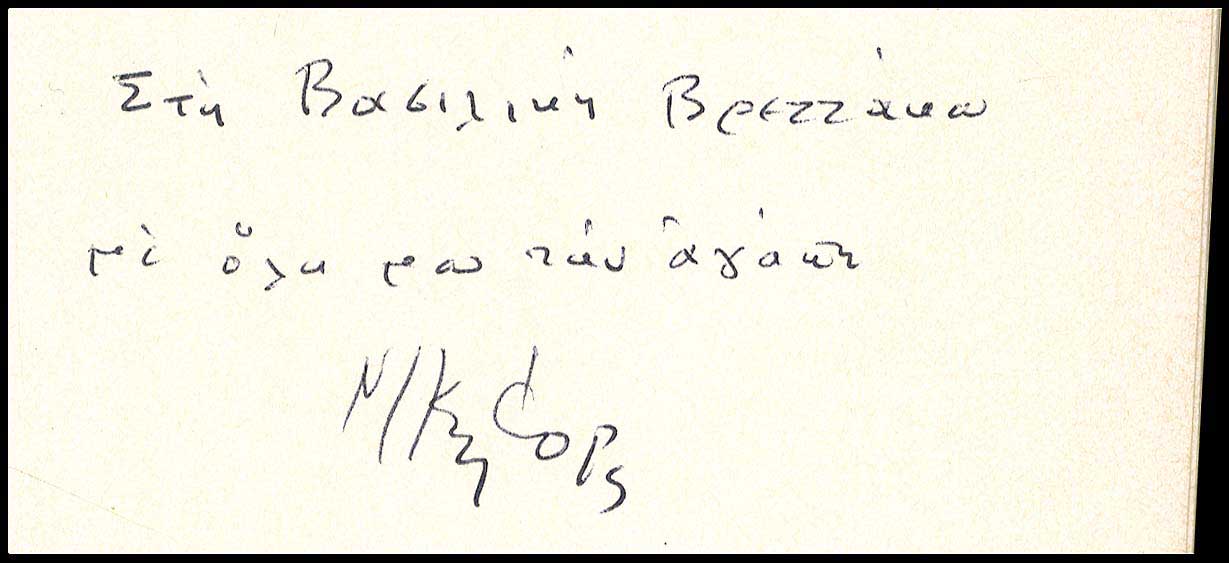 Στὴ Βασιλικὴ Βρεττάκου
μὲ ὅλη μου τὴν ἀγάπη
Νικηφόρος